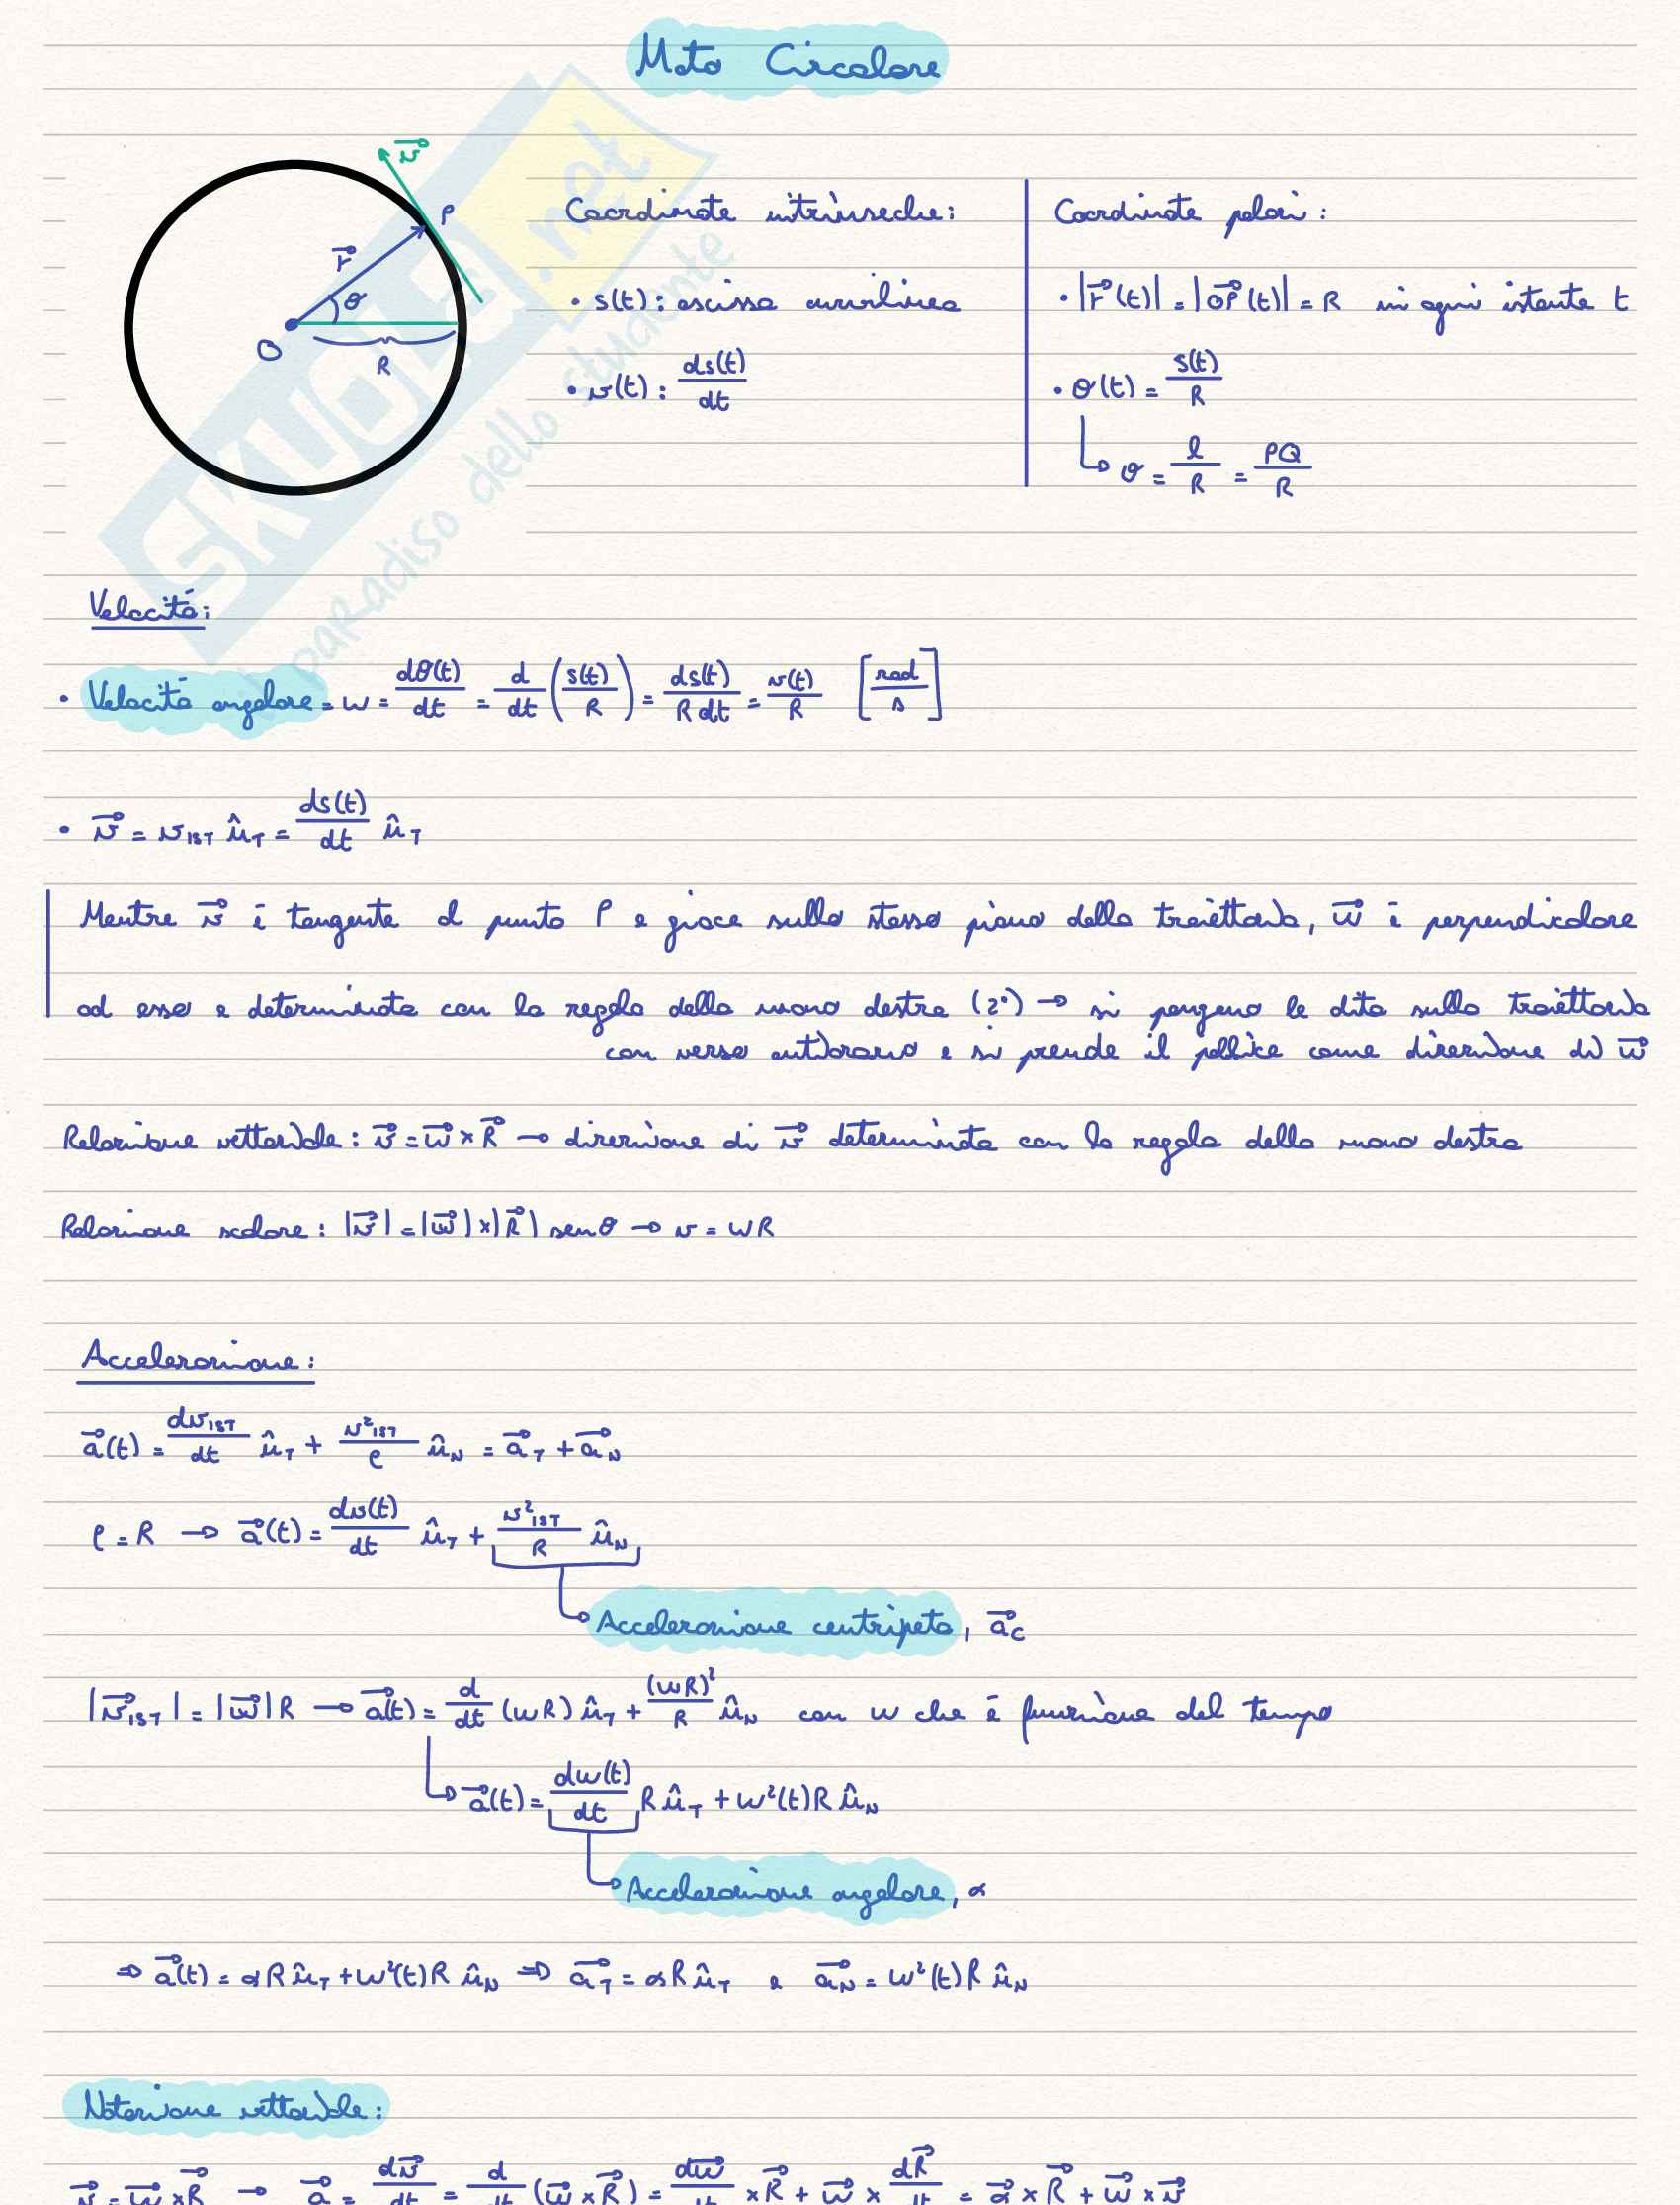 Moto Circolare
v⃗
P
r⃗
θ
O
R
Coordinate intrinseche:
• s(t): ascissa curvilinea
• v(t): ds(t)/dt
Coordinate polari:
• |r⃗(t)| = |OP⃗(t)| = R in ogni istante t
• θ(t) = s(t)/R
↳ θ = l/R = PQ/R
SKUOLA.net
il paradiso dello studente
Velocità:
• Velocità angolare = w = dθ(t)/dt = d/dt (s(t)/R) = ds(t)/R dt = v(t)/R [rad/s]
• v⃗ = v_IST û_T = ds(t)/dt û_T
Mentre v⃗ è tangente al punto P e giace sullo stesso piano della traiettoria, w⃗ è perpendicolare
ad esso e determinata con la regola della mano destra (2°) → si pongono le dita sulla traiettoria
con verso antiorario e si prende il pollice come direzione di w⃗
Relazione vettoriale: v⃗ = w⃗ × R⃗ → direzione di v⃗ determinata con la regola della mano destra
Relazione scalare: |v⃗| = |w⃗| × |R⃗| senθ → v = wR
Accelerazione:
a⃗(t) = dv_IST/dt û_T + v²_IST/ρ û_N = a⃗_T + a⃗_N
ρ = R → a⃗(t) = dv(t)/dt û_T + v²_IST/R û_N
↳ Accelerazione centripeta, a⃗_C
|v⃗_IST| = |w⃗| R → a⃗(t) = d/dt (wR) û_T + (wR)²/R û_N con w che è funzione del tempo
↳ a⃗(t) = dw(t)/dt R û_T + w²(t) R û_N
↳ Accelerazione angolare, α
⇒ a⃗(t) = α R û_T + w²(t) R û_N ⇒ a⃗_T = α R û_T e a⃗_N = w²(t) R û_N
Notazione vettoriale:
v⃗ = w⃗ × R⃗ → a⃗ = dv⃗/dt = d/dt (w⃗ × R⃗) = dw⃗/dt × R⃗ + w⃗ × dR⃗/dt = α⃗ × R⃗ + w⃗ × v⃗